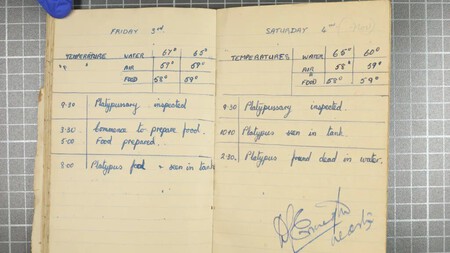 FRIDAY 3rd
TEMPERATURE WATER 67° 65°
" " AIR 59° 59°
FOOD 58° 59°
9.30 Platypussary inspected
3.30 Commence to prepare food.
5.00 Food prepared.
8.00 Platypus food & seen in tank
SATURDAY 4
TEMPERATURES WATER 65° 60°
AIR 58° 59°
FOOD 58° 59°
9.30 Platypussary inspected.
10.10 Platypus seen in tank.
2.30. Platypus found dead in water.